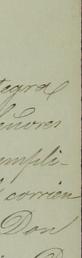 tegra
eñores
empli-
corrien
Don